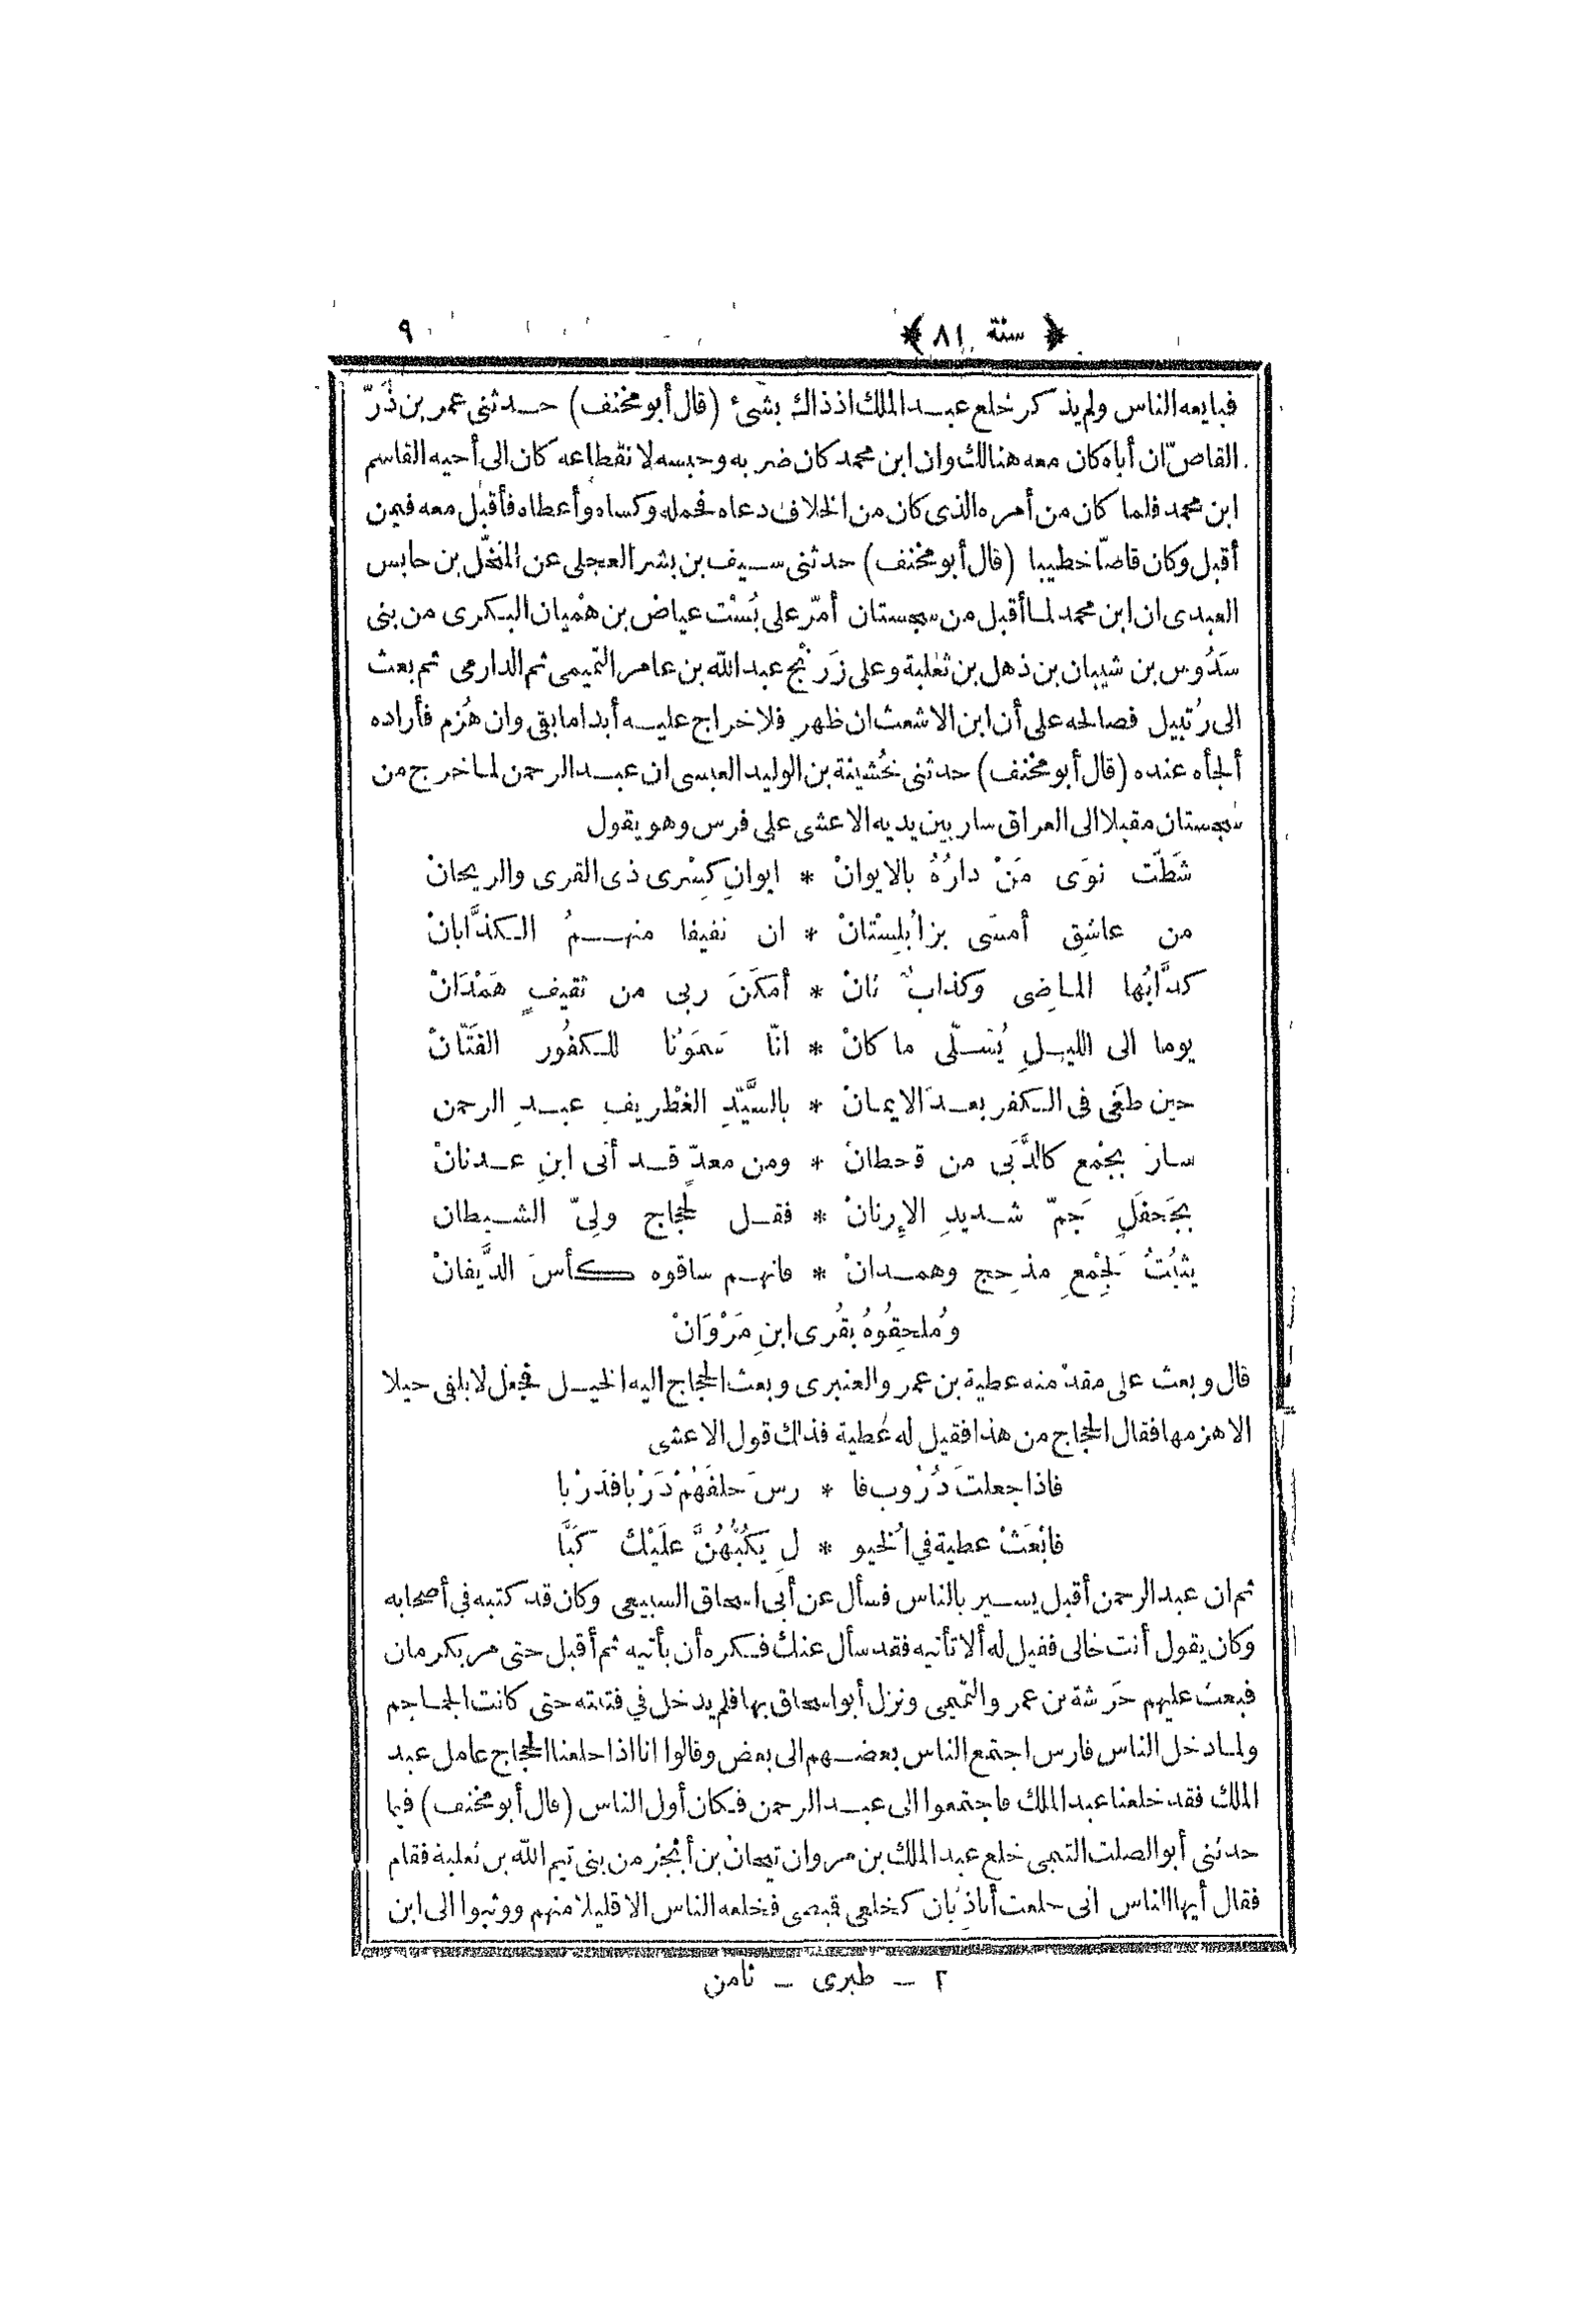 ﴿ سنة ٨١ ﴾ ٩
فبايعه الناس ولم يذكر خلع عبد الملك اذ ذاك بشئ (قال أبو مخنف) حدثنى عمر بن ذَرّ
القاصّ ان أباه كان معه هنالك وان ابن محمد كان ضربه وحبسه لانقطاعه كان الى أخيه القاسم
ابن محمد فلما كان من أمره الذى كان من الخلاف دعاه فحمله وكساه وأعطاه فأقبل معه فيمن
أقبل وكان قاصّا خطيبا (قال أبو مخنف) حدثنى سيف بن بشر العجلى عن المنخّل بن حابس
العبدى ان ابن محمد لما أقبل من سجستان أمّر على بُسْت عياض بن هميان البكرى من بنى
سَدُوس بن شيبان بن ذهل بن ثعلبة وعلى زَرَنْج عبد الله بن عامر التميمى ثم الدارمى ثم بعث
الى رُتبيل فصالحه على أن ابن الاشعث ان ظهر فلا خراج عليه أبدا ما بقى وان هُزم فأراده
ألجأه عنده (قال أبو مخنف) حدثنى خُشينة بن الوليد العبسى ان عبد الرحمن لما خرج من
سجستان مقبلا الى العراق سار بين يديه الاعشى على فرس وهو يقول
شَطّت نوَى مَنْ دارُهُ بالايوانْ * ايوانِ كِسْرى ذى القرى والريحانْ
من عاشقٍ أمسَى بزابُلِسْتانْ * ان ثقيفا منهمُ الكذَّابانْ
كذَّابُها الماضِى وكذابٌ ثانْ * أمكَنَ ربى من ثقيفٍ هَمْدَانْ
يوما الى الليلِ يُسَلّى ما كانْ * انّا سَمَوْنا للكفُور الفَتّانْ
حين طغَى فى الكفر بعدَ الايمانْ * بالسَّيّدِ الغطْريفِ عبدِ الرحمن
سارَ بجْمع كالدَّبَى من قحطانْ * ومن معدّ قد أتى ابنِ عدنانْ
بجَحفَلٍ جَمّ شديدِ الإرنانْ * فقل لحجاج ولىّ الشيطان
يثبُتُ لجَمْعِ مذحِج وهمدانْ * فانهم ساقوه كأسَ الذَّيفانْ
ومُلحِقُوهُ بقُرى ابنِ مَرْوَانْ
قال وبعث على مقدمته عطية بن عمرو العنبرى وبعث الحجاج اليه الخيل فجعل لا يلقى خيلا
الا هزمها فقال الحجاج من هذا فقيل له عطية فذلك قول الاعشى
فاذا جعلتَ دُرُوب فا * رسَ خلفَهُمْ دَرْبا فدَرْبا
فابْعَثْ عطية فى الخيو * لِ يكُبُّهُنَّ علَيْكَ كبَّا
ثم ان عبد الرحمن أقبل يسير بالناس فسأل عن أبى اسحاق السبيعى وكان قد كتبه فى أصحابه
وكان يقول أنت خالى فقيل له ألا تأتيه فقد سأل عنك فكره أن يأتيه ثم أقبل حتى مر بكرمان
فبعث عليهم خَرَشة بن عمرو التميمى ونزل أبو اسحاق بها فلم يدخل فى فتنته حتى كانت الجماجم
ولما دخل الناس فارس اجتمع الناس بعضهم الى بعض وقالوا انا اذا خلعنا الحجاج عامل عبد
الملك فقد خلعنا عبد الملك فاجتمعوا الى عبد الرحمن فكان أول الناس (قال أبو مخنف) فيما
حدثنى أبو الصلت التيمى خلع عبد الملك بن مروان تيحان بن أبْجُر من بنى تيم الله بن ثعلبة فقام
فقال أيها الناس انى خلعت أبا ذِبّان كخلعى قميصى فخلعه الناس الا قليلا منهم ووثبوا الى ابن
٢ ــ طبرى ــ ثامن